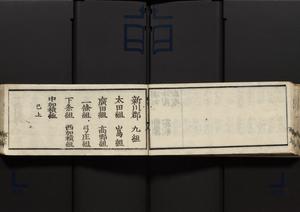 新川郡 九組
太田組 嶋組
廣田組 高野組
一條組 弓庄組
下条組 西加積組
中加積組
已上